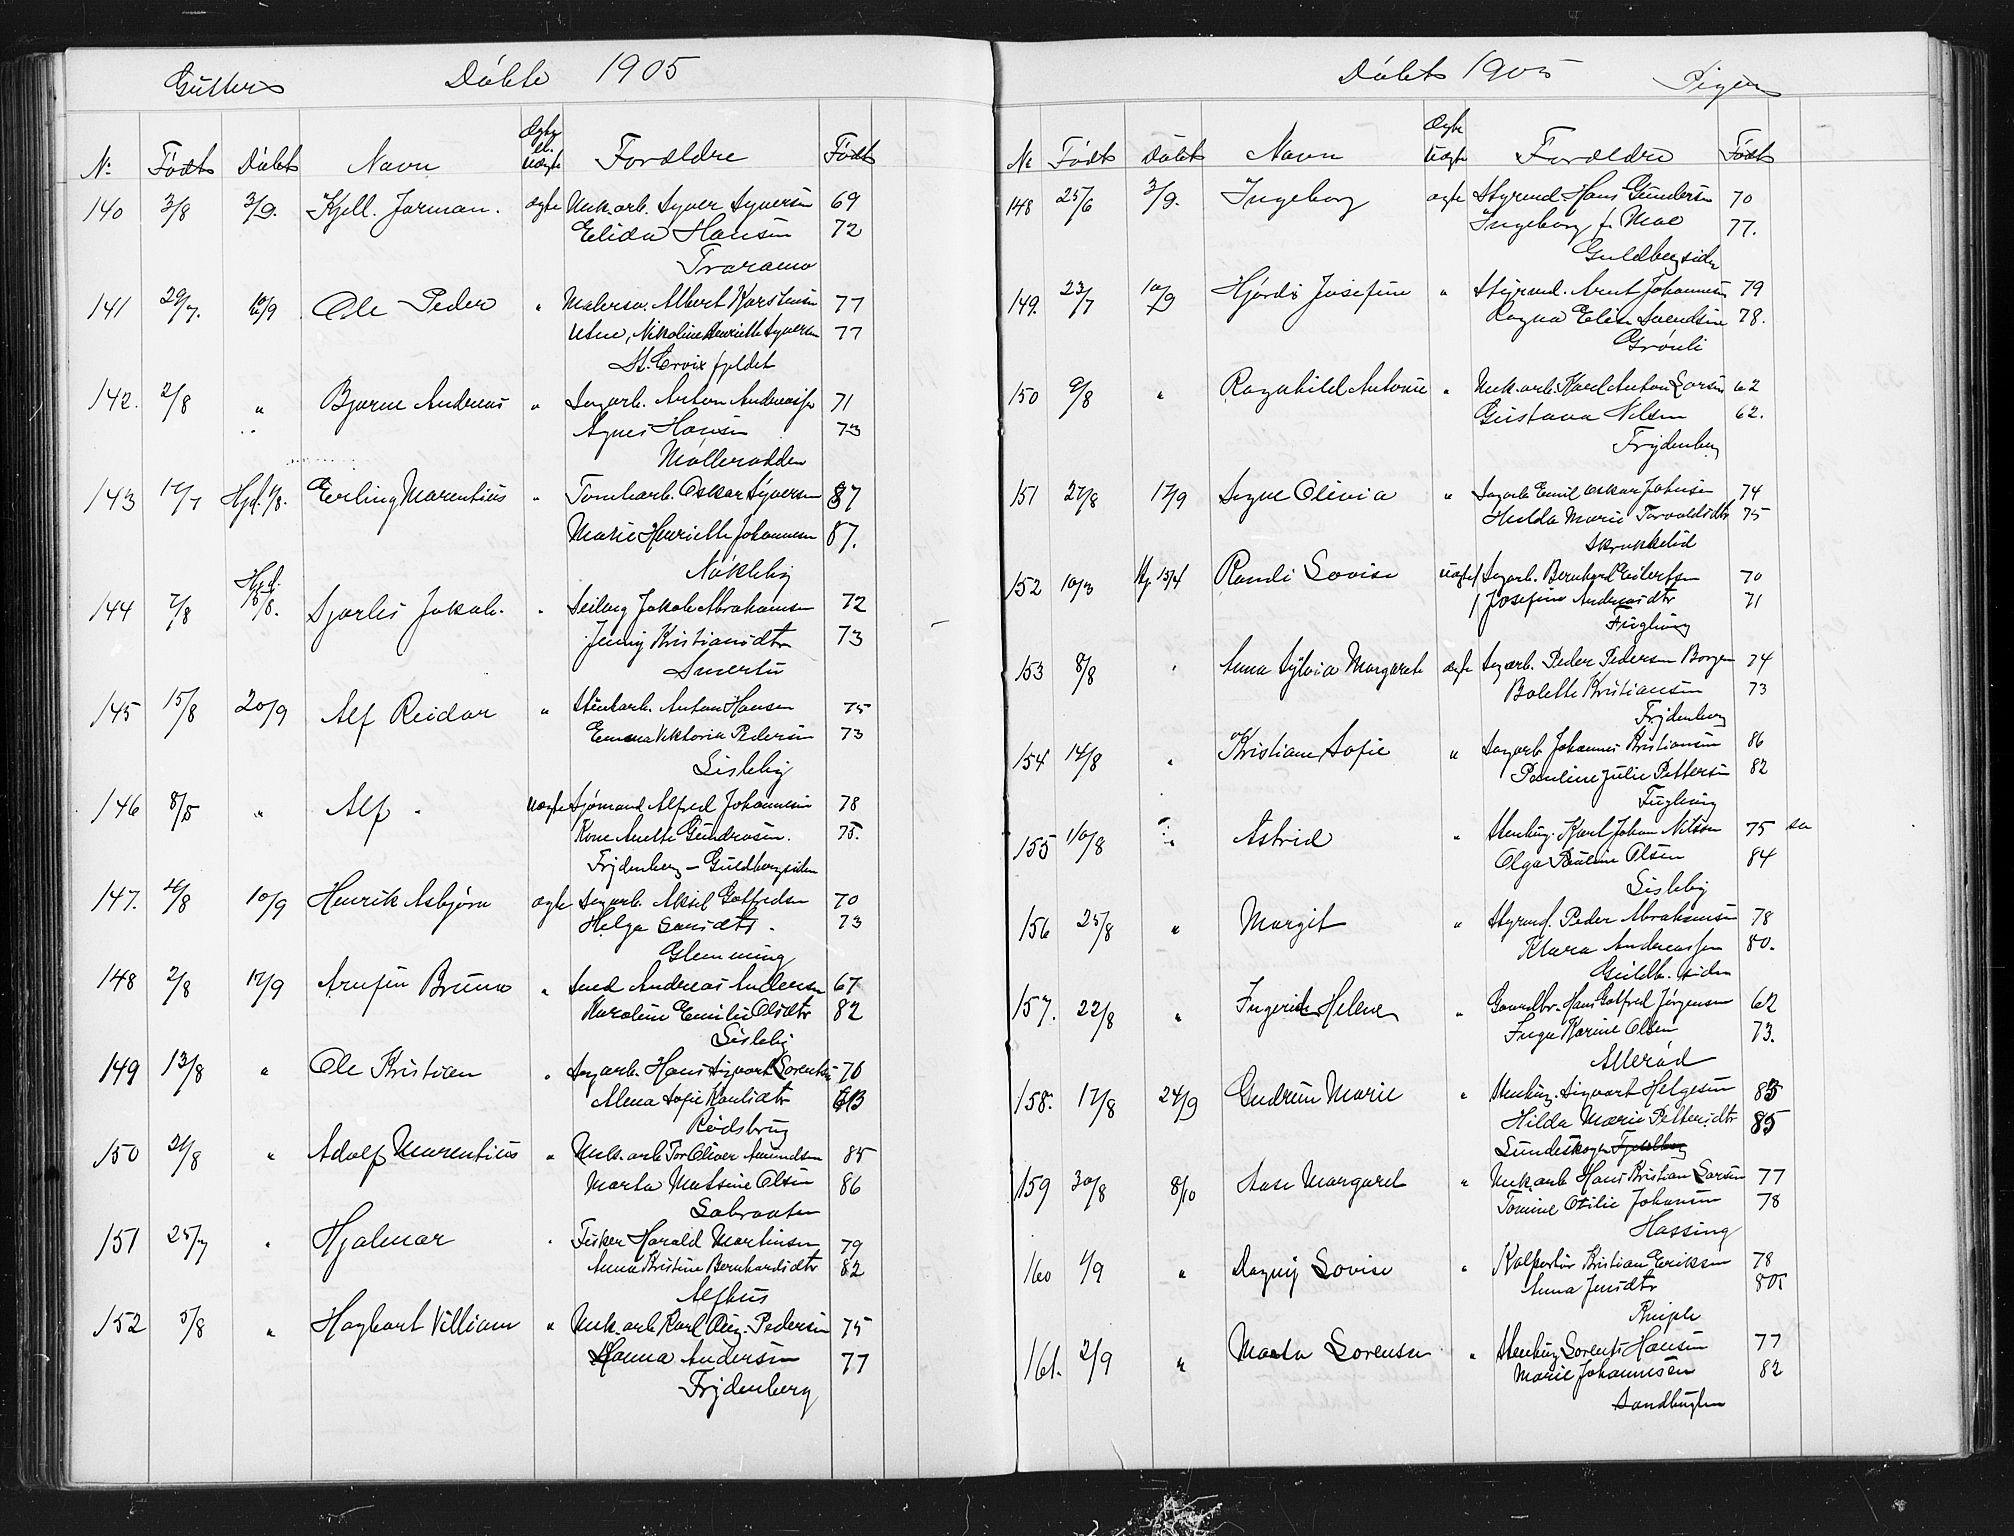 Gutter Døbte 1905
No Født Døbt Navn Ægte el. Uægte Forældre Født
140 3/8 3/9. Kjell. Jarman. ægte Mek.arb. Syver Syversen 69
Elida Hansen 72
Traramo
141 29/7. 10/9 Ole Peder " Malersv. Albert Karstensen 77
Nikoline Henriette Syversen 77
St. Croix fjeldet
142. 2/8 " Bjarne Andreas " Sagarb. Anton Andreassen 71
Agnes Hansen 73
Mølleradden
143 12/7 Hjd. 1/8. Erling Marentius " Tomtearb. Oskar Syversen 87
Marie Henriette Johannesen 87.
Nøkleby
144 7/8 Hjd. 15/8. Sjarles Jakob. " Jakob Abrahamsen 72
Jenny Kristiansdtr 73
Smertu
145 15/8 20/9 Alf Reidar " Stenharb. Anton Hansen 75
Emma Viktoria Pedersen 73
Lisleby
146 8/5 " Alf. uægte Sjømand Alfred Johannesen 78
Kone Anette Gundrosen. 75.
Frydenberg - Guldbergsiden
147. 4/8 10/9 Henrik Asbjørn ægte Sagarb. Aksel Gotfredsen 70
Helga Larsdtr. 73
Glemming
148 2/8 17/9 Arnfin Bruno " Smed Andreas Andersen 67
Karoline Emilie Olsdtr 82
Lisleby
149 13/8 " Ole Kristian " Sagarb. Hans Sigvart Lorentsen 70
Alma Sofie Karlsdtr 73
Rødsbrug
150 24/8 " Adolf Marentius " Mek.arb. Tor Oliver Amundsen 85
Marta Matsine Olsen 86
Labraaten
151 25/7 " Hjalmar " Fisker Harald Martinsen 79
Anna Kristine Bernhardsdtr 82
Alfhus
152 5/8 " Hagbart Villiam " Mek.arb. Karl Aug. Pedersen 75
Hanna Andersen 77
Frydenberg
Døbte 1905 Piger
No Født Døbt Navn Ægte Uægte Forældre Født
148 25/6 3/9. Ingeborg ægte Styrmd. Hans Gundersen 70
Ingeborg f. Moe 77.
Guldbergsiden
149. 23/7 10/9 Hjørdis Josefine " Styrmd. Arnt Johannesen 79
Ragna Elise Svendsen 78.
Grønli
150 9/8 " Ragnhild Antonie " Mek.arb. Karl Anton Larsen 62
Gustava Nilsen 62.
Frydenberg
151 27/8 17/9 Signe Olivia " Sagarb. Emil Oskar Johnsen 74
Hulda Marie Torvaldsdtr 75
Skrukkelid
152 10/3 Hj 15/4 Randi Lovise uægte Sagarb. Bernhard Eilertsen 70
Josefine Andreasdtr 71
Fuglevig
153 8/8 " Anna Sylvia Margarete ægte Sagarb. Peder Pedersen Borgen 74
Bolette Kristiansen 73
Frydenberg
154 14/8 " Kristiane Sofie " Sagarb. Johannes Kristiansen 86
Pauline Julie Pettersen 82
Fuglevig
155 10/8 " Astrid " Stenhug. Karl Johan Nilsen 75
Olga Pauline Olsen 84
Lisleby
156 25/8 " Margit " Styrmd. Peder Abrahamsen 78
Klara Andreassen 80.
Guldb. siden
157. 22/8 " Ingerid Helene " Hans Gotfred Jørgensen 62
Inga Karine Olsen 73.
Allerød
158. 17/8 24/9 Gudrun Marie " Stenhug. Sigvart Helgesen 83
Hilda Marie Pettersdtr 85
Lundeskogen Fjeldberg
159 30/8 8/10 Aase Margaret " Mek.arb. Hans Kristian Larsen 77
Tomine Otilie Johansen 78
Hassing
160 1/9 " Dagny Lovise " Kolportør Kristian Eriksen 78
Anna Jensdtr 80
Kniple
161. 2/9 " Marta Lorense " Stenhug Lorents Hansen 77
Marie Johannesen 82
Sandbugten